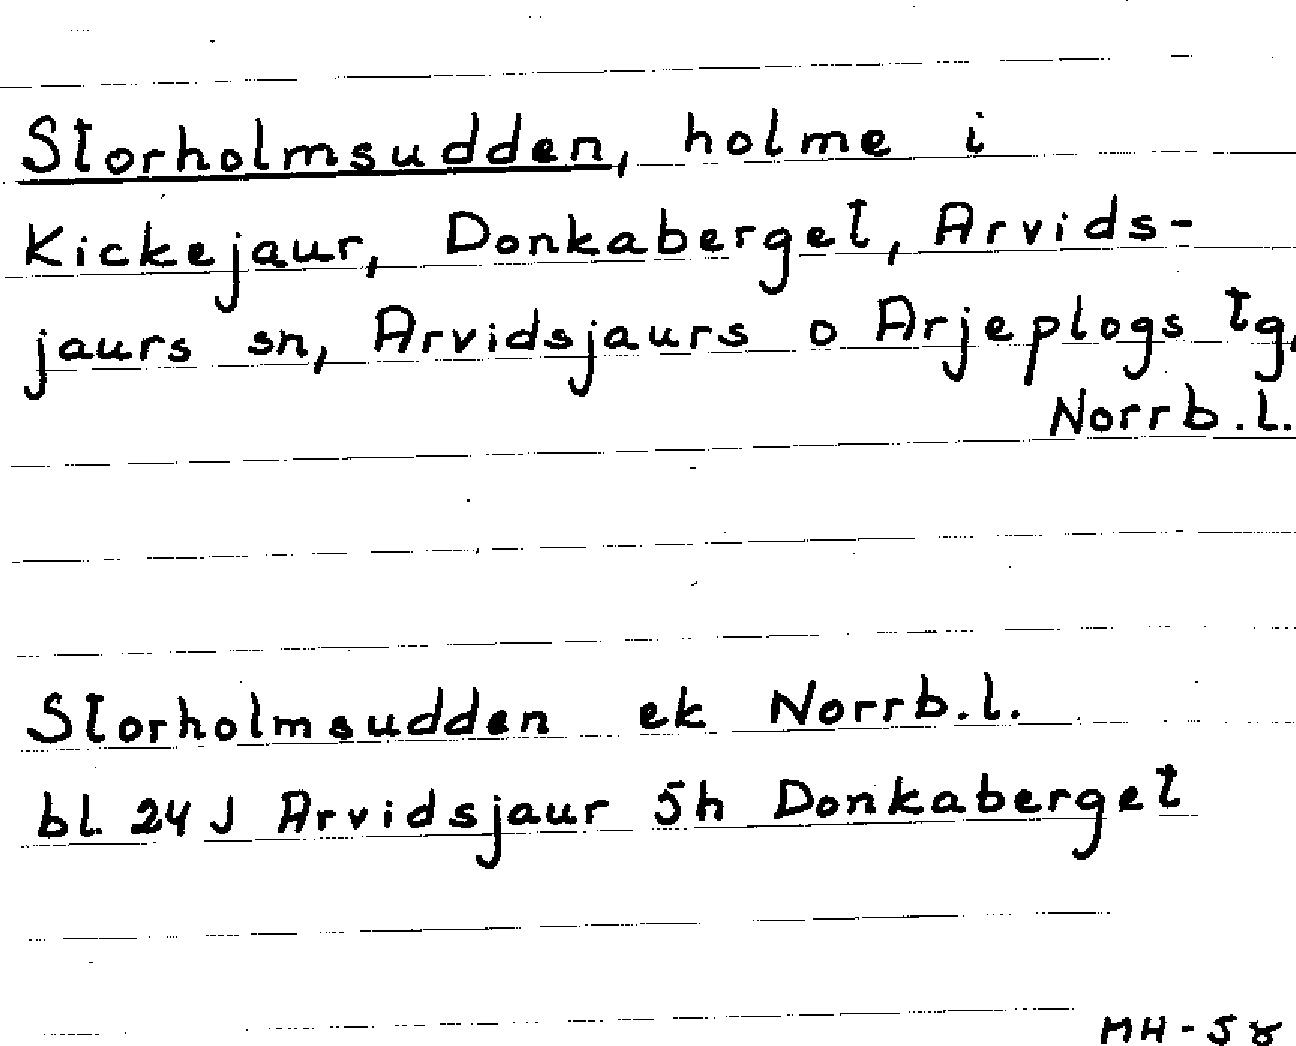 Storholmsudden, holme i
Kickejaur, Donkaberget, Arvids-
jaurs sn, Arvidsjaurs o Arjeplogs tg,
Norrb.l.
Storholmsudden ek Norrb.l.
bl. 24 J Arvidsjaur 5h Donkaberget
MH-58